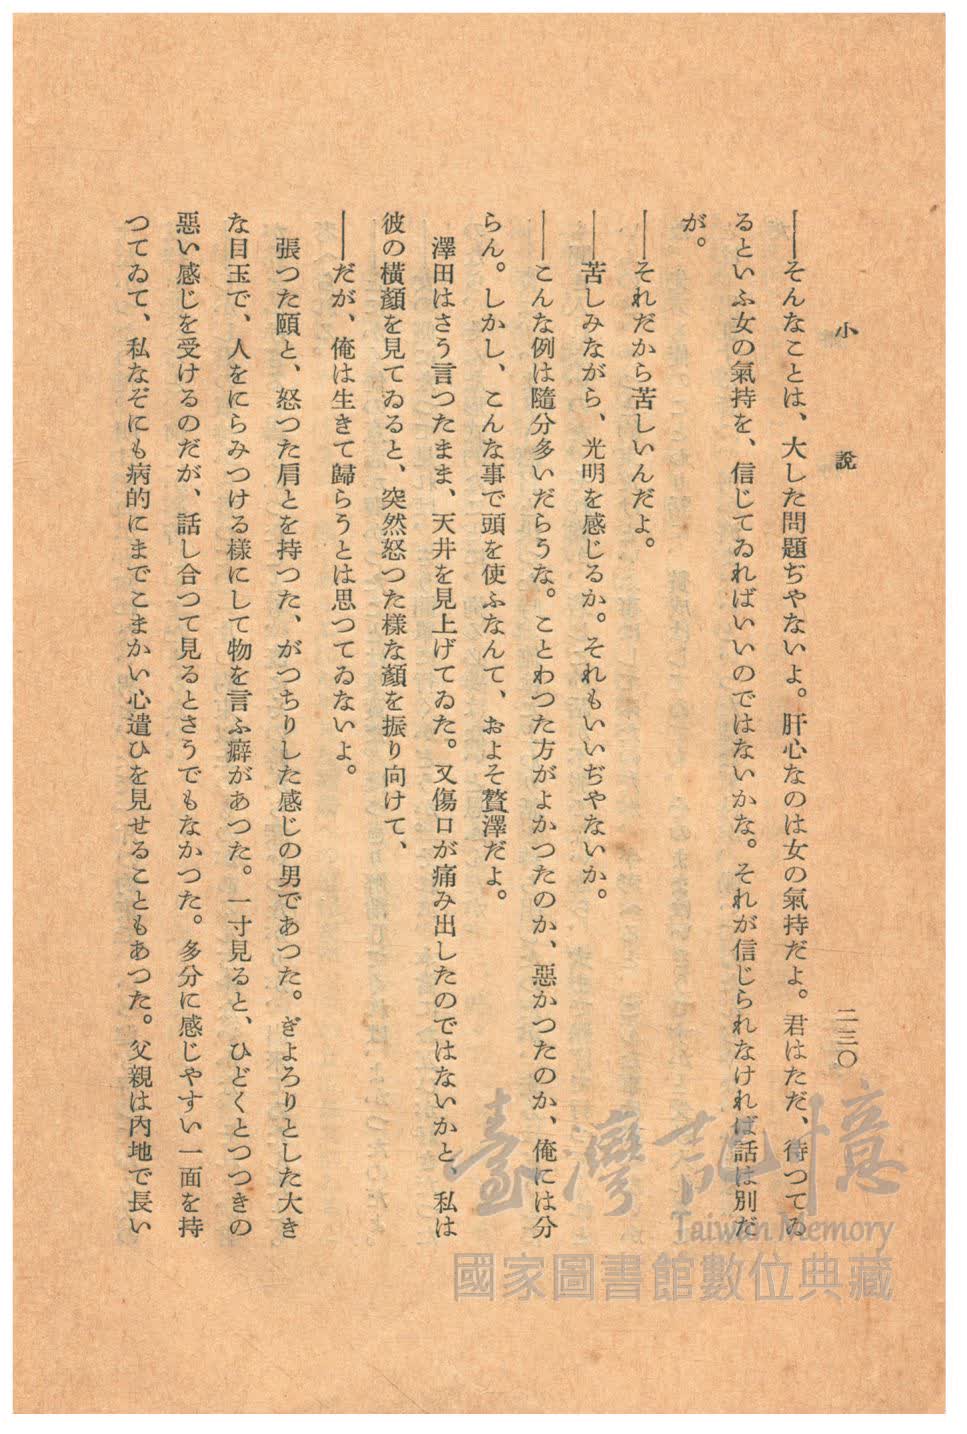 小說
二三〇
――そんなことは、大した問題ぢやないよ。肝心なのは女の氣持だよ。君はただ、待つてゐ
るといふ女の氣持を、信じてゐればいいのではないかな。それが信じられなければ話は別だ
が。
――それだから苦しいんだよ。
――苦しみながら、光明を感じるか。それもいいぢやないか。
――こんな例は隨分多いだらうな。ことわつた方がよかつたのか、惡かつたのか、俺には分
らん。しかし、こんな事で頭を使ふなんて、およそ贅澤だよ。
澤田はさう言つたまま、天井を見上げてゐた。又傷口が痛み出したのではないかと、私は
彼の橫顏を見てゐると、突然怒つた樣な顏を振り向けて、
――だが、俺は生きて歸らうとは思つてゐないよ。
張つた頤と、怒つた肩とを持つた、がつちりした感じの男であつた。ぎよろりとした大き
な目玉で、人をにらみつける樣にして物を言ふ癖があつた。一寸見ると、ひどくとつつきの
惡い感じを受けるのだが、話し合つて見るとさうでもなかつた。多分に感じやすい一面を持
つてゐて、私なぞにも病的にまでこまかい心遣ひを見せることもあつた。父親は內地で長い
臺灣記憶
Taiwan Memory
國家圖書館數位典藏